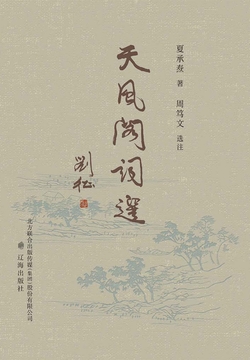 夏承焘 著
周笃文 选注
天风阁词选
刘松
北方联合出版传媒（集团）股份有限公司
辽海出版社